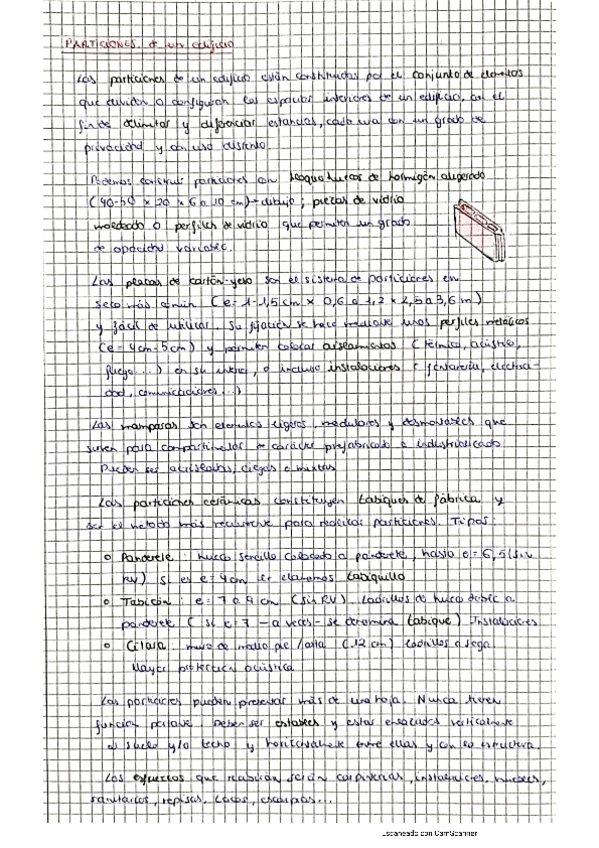 PARTICIONES de un edificio
Las particiones de un edificio están constituidas por el conjunto de elementos
que dividen o configuran los espacios interiores de un edificio, con el
fin de delimitar y diferenciar estancias, cada una con un grado de
privacidad y con uso distinto.
Podemos construir particiones con bloque huecos de hormigón aligerado
(40-50 x 20 x 6 a 10 cm) → dibujo; piezas de vidrio
moldeado o perfiles de vidrio que permiten un grado
de opacidad variable.
Las placas de cartón-yeso son el sistema de particiones en
seco más común (e = 1-1,5 cm x 0,6 a 1,2 x 2,5 a 3,6 m)
y fácil de utilizar. Su fijación se hace mediante unos perfiles metálicos
(e = 4cm-5cm) y permiten colocar aislamientos (térmico, acústico,
fuego...) en su interior, o incluso instalaciones (fontanería, electrici-
dad, comunicaciones...)
Las mamparas son elementos ligeros, modulares y desmontables que
sirven para compartimentar de carácter prefabricado e industrializado
Pueden ser acristaladas, ciegas o mixtas
Las particiones cerámicas constituyen tabiques de fábrica y
ser el método más recurrente para realizar particiones. Tipos:
o Panderete: hueco sencillo colocado a panderete, hasta e = 6,5 (sin
RV) si es e = 4cm se llamamos tabiquillo
o Tabicón: e = 7 a 9 cm (sin RV) Ladrillos de hueco doble a
panderete (si e = 7 - a veces - se denomina tabique) Instalaciones
o Citara: muro de medio pie / asta (12 cm) ladrillos a soga.
Mayor protección acústica
Las particiones pueden presentar más de una hoja. Nunca tienen
función portante. Deben ser estables y estar enlazados verticalmente
al suelo y/o techo y horizontalmente entre ellas y con la estructura.
Los esfuerzos que recibirán serán carpinterías, instalaciones, muebles,
sanitarios, repisas,
Escaneado con CamScanner